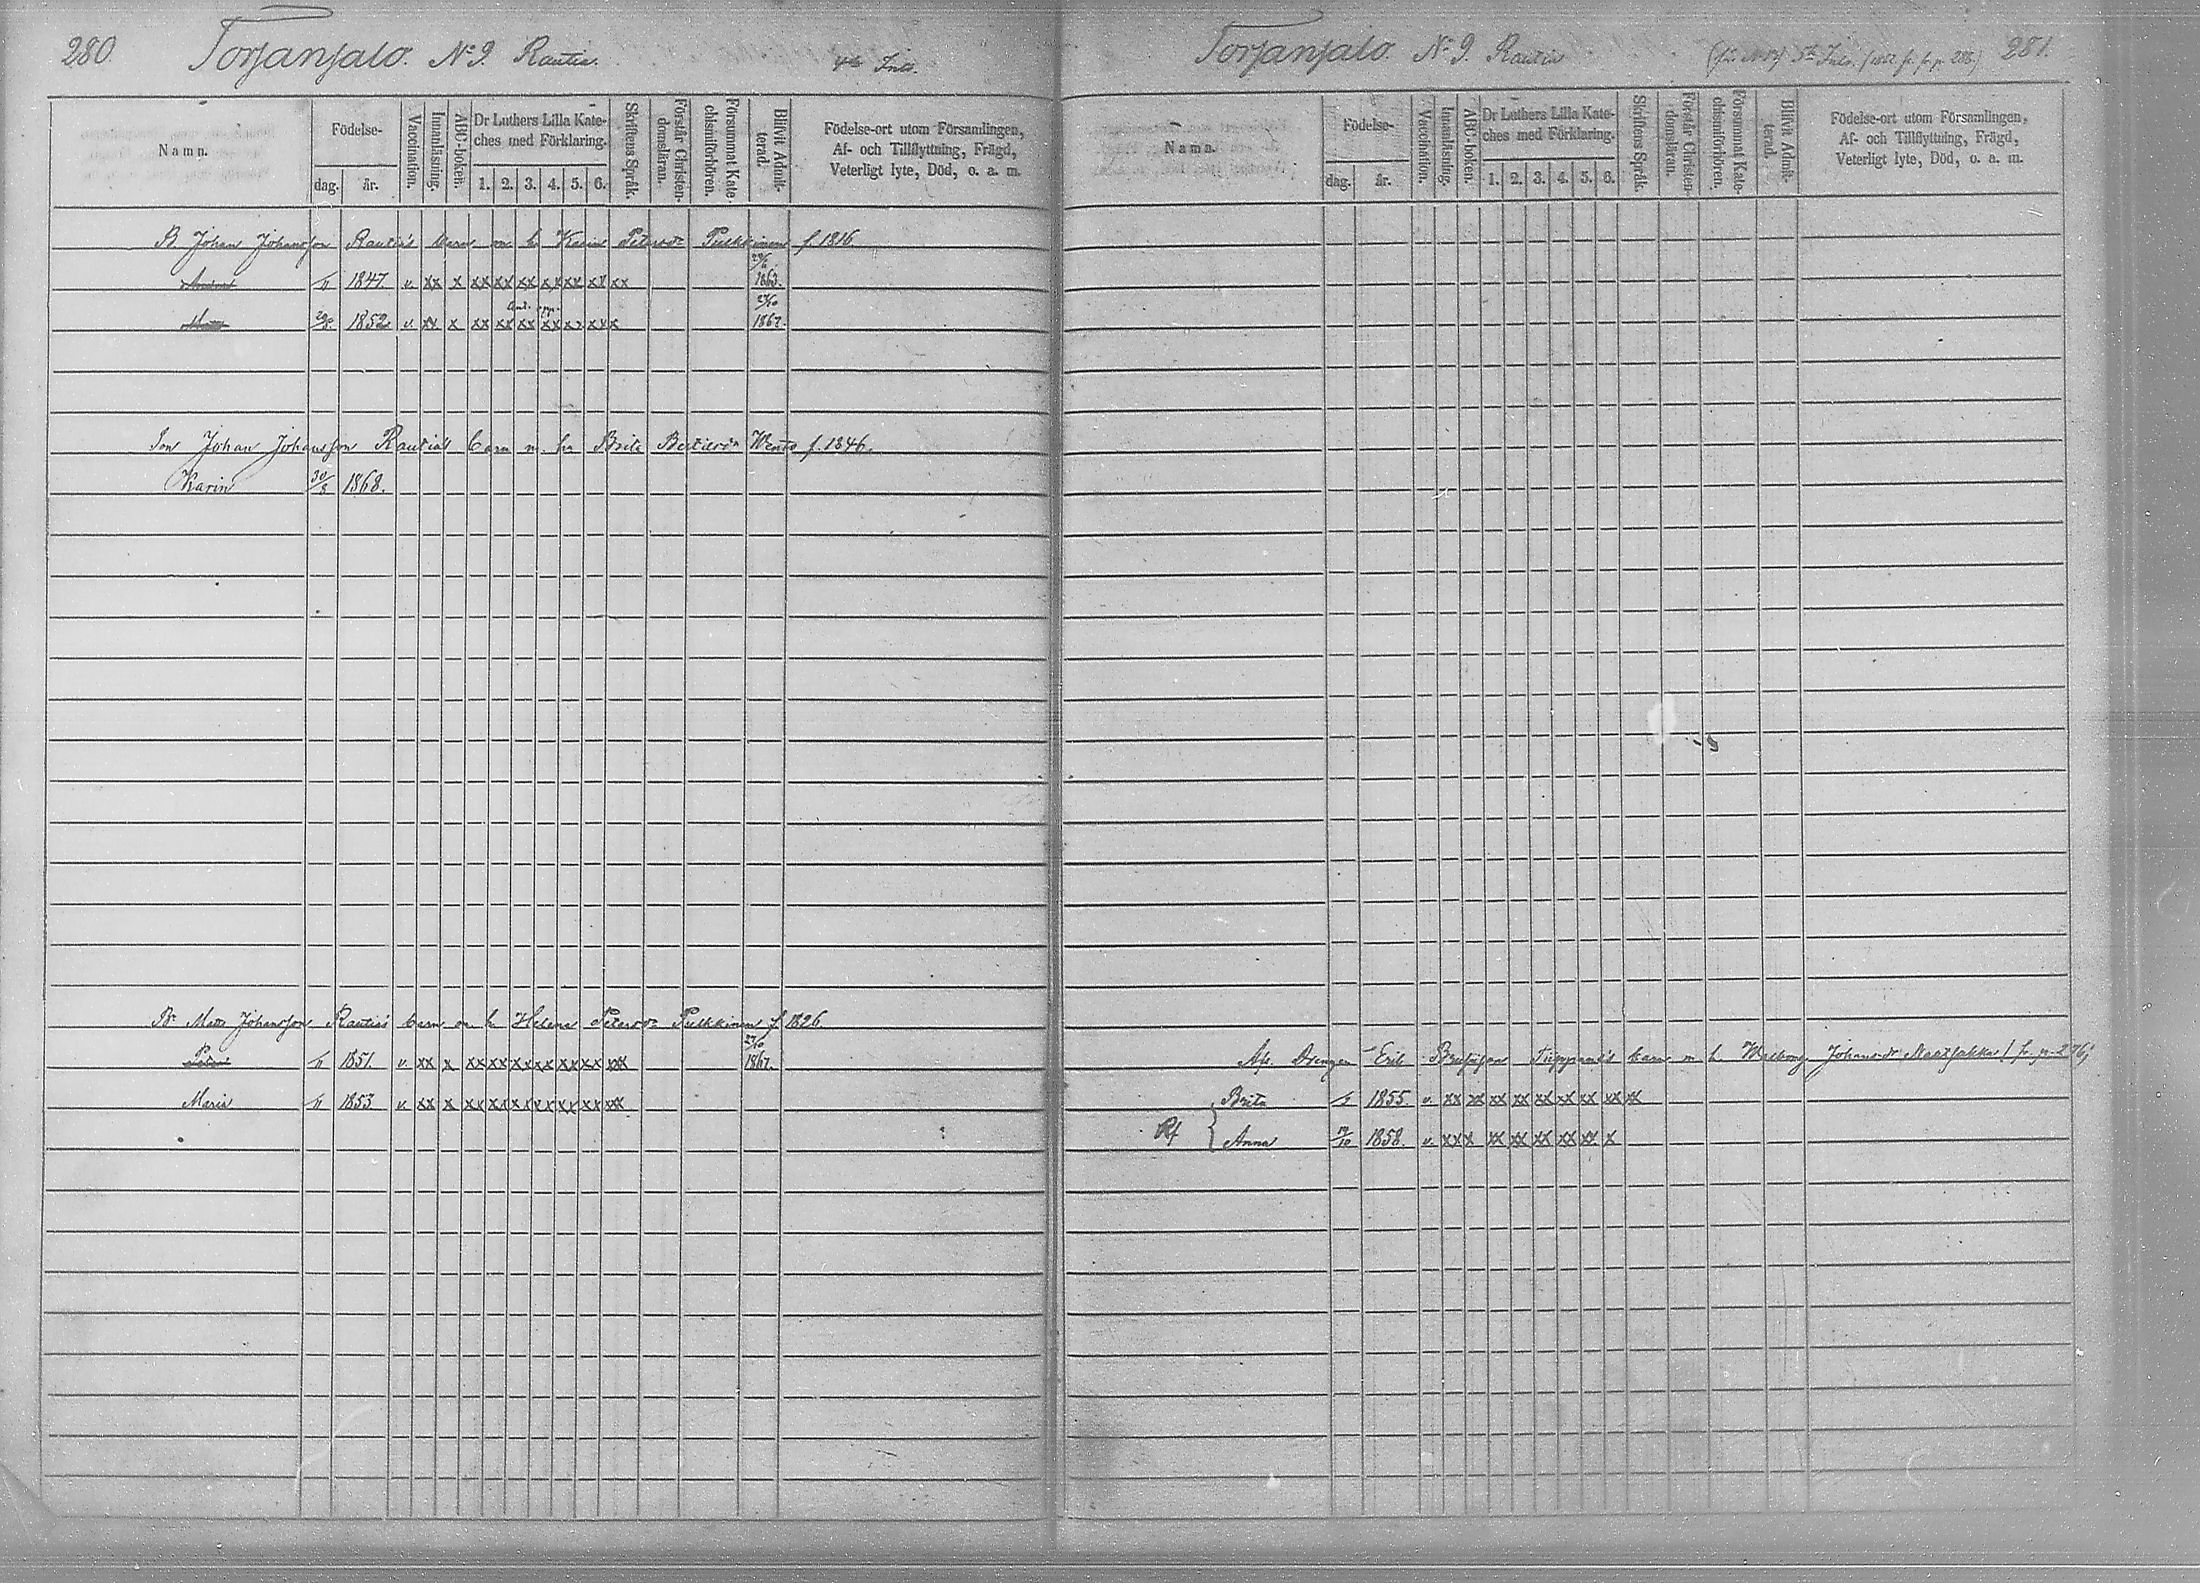 280. Torjansalo. No 9. Rautia. Inls.
Namn.
Födelse-
dag.
år.
Vaccination.
Innanläsning.
ABC-boken.
Dr Luthers Lilla Kate-
ches med Förklaring.
1. 2. 3. 4. 5. 6.
Skriftens Språk.
Förstår Christen-
domsläran.
Försummat Kate-
chismiförhören.
Blifvit Admit-
terad.
Födelse-ort utom Församlingen,
Af- och Tillflyttning, Frägd,
Veterligt lyte, Död, o. a. m.
B Johan Johansson Rautia's barn m h Karin Petersdr Pulkkinen f. 1816
1847. v. xx x xx xx xx xx xx xx xx 1863.
1852 v. xx x xx xx xx xx xx xx x 27/10 1867.
Son Johan Johansson Rautia's barn m. h. Brita Bertilsdr Wento f. 1846.
Karin 30/8 1868.
Br Mats Johansson Rautia's barn m h Helena Petersdr Pulkkinen f 1826
1851. v. xx x xx xx xx xx xx xx xx 27/10 1867.
Maria 1853 v. xx x xx xx xx xx xx xx xx
Torjansalo. No 9. Rautia 5te Inls. 281.
Namn.
Födelse-
dag.
år.
Vaccination.
Innanläsning.
ABC-boken.
Dr Luthers Lilla Kate-
ches med Förklaring.
1. 2. 3. 4. 5. 6.
Skriftens Språk.
Förstår Christen-
domsläran.
Försummat Kate-
chismiförhören.
Blifvit Admit-
terad.
Födelse-ort utom Församlingen,
Af- och Tillflyttning, Frägd,
Veterligt lyte, Död, o. a. m.
Drengen Erik barn m h Walborg Johansdr
Brita 1855. v. xx xx xx xx xx xx xx xx xx
Anna 1858. v. xx x xx xx xx xx xx x